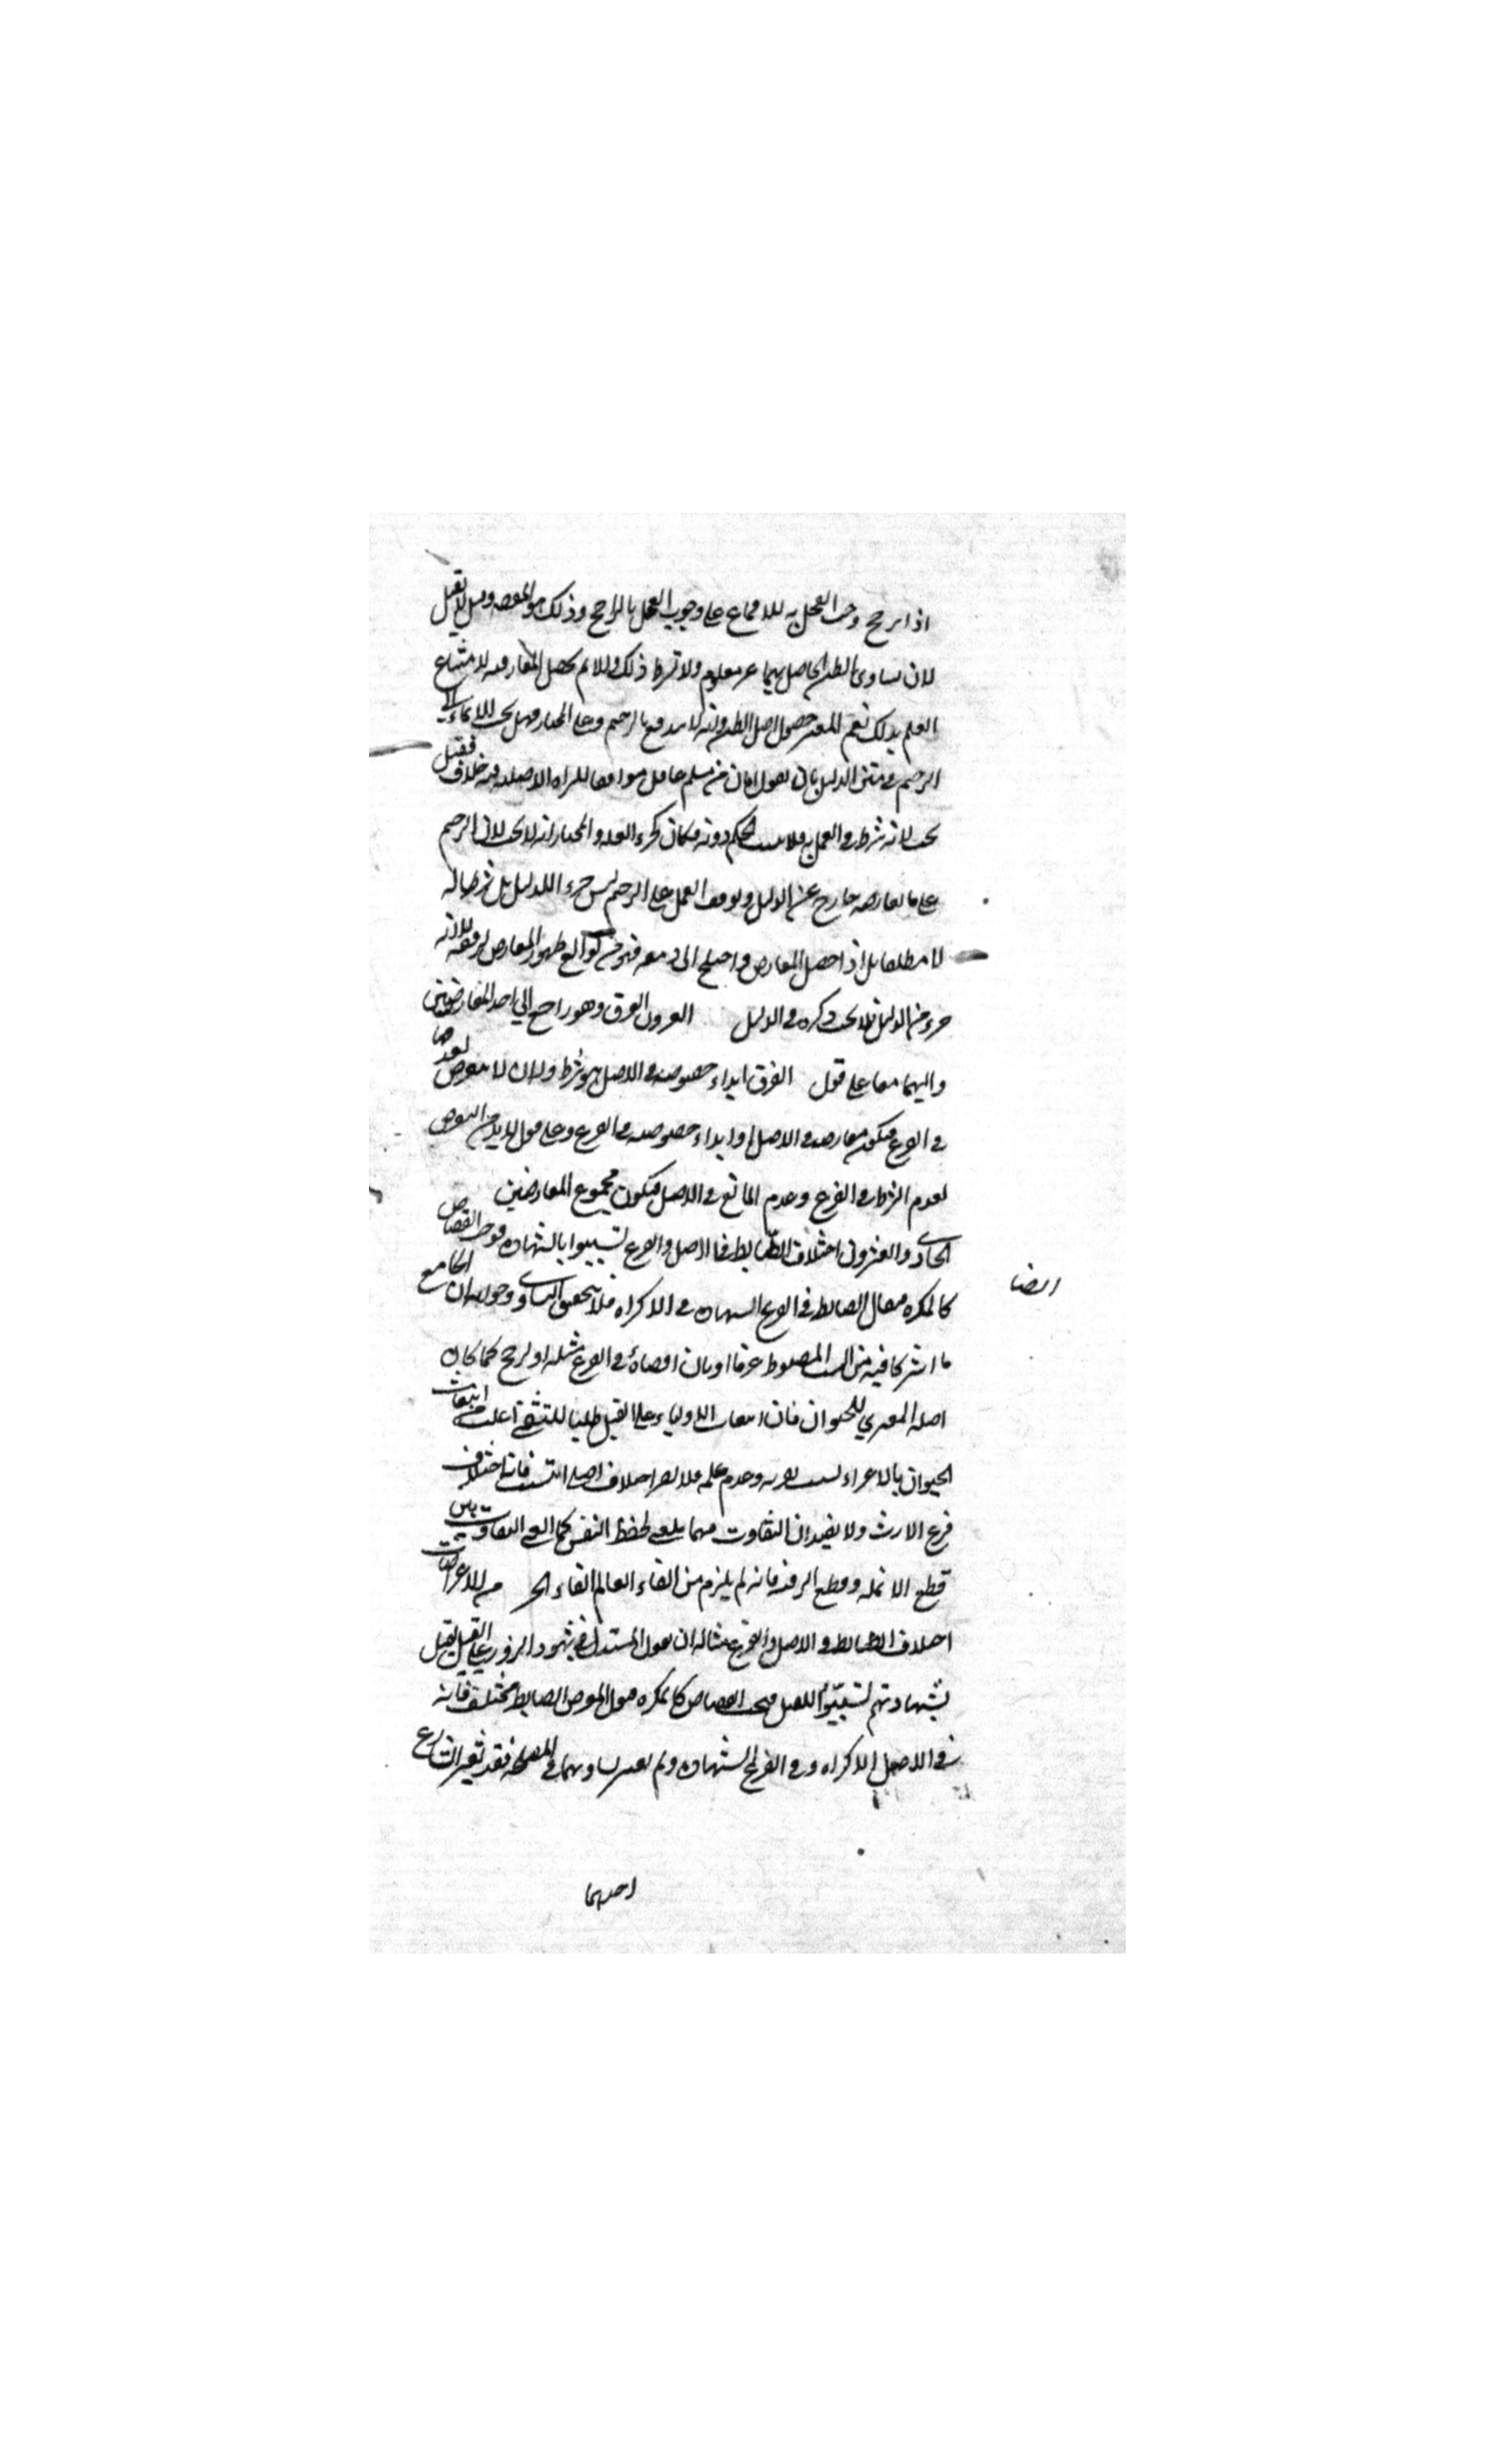 اذا رجح وجب العمل به للاجماع على وجوب العمل بالراجح وذلك هو المقصود وقيل لا يقبل
لان تساوي الظن الحاصل بهما غير معلوم ولا يشترط ذلك والا لم تحصل المعارضة لامتناع
العلم بذلك نعم المعتبر حصول اصل الظن وانه لا يندفع بالترجيح وعلى المختار فهل يجب الايماء الى
الترجيح في متن الدليل بان يقول امان من مسلم عاقل موافقا للبراءة الاصلية فيه خلاف فقيل
يجب لانه شرط في العمل به فلا يثبت الحكم دونه فكان كجزء العلة والمختار انه لا يجب لان الترجيح
على ما يعارضه خارج عن الدليل وتوقف العمل على الترجيح ليس جزء الدليل بل شرطا له
لا مطلقا بل اذا حصل المعارض واحتيج الى دفعه فهو من توابع ظهور المعارض لدفعه لا انه
جزء من الدليل فلا يجب ذكره في الدليل العشرون الفرق وهو راجع الى احد المعارضتين
واليهما معا على قول الفرق ابداء خصوصية في الاصل هو شرط وله ان لا يتعرض لعدمها
في الفرع فيكون معارضة في الاصل او ابداء خصوصية في الفرع وعلى قول لا بد من التعرض
لعدم الشرط في الفرع وعدم المانع في الاصل فيكون مجموع المعارضتين
الحادي والعشرون اختلاف الضابط في الاصل والفرع تسببوا بالشهادة فوجب القصاص
كالمكره فيقال الضابط في الفرع الشهادة في الاكراه فلا يتحقق التساوي وجوابه ان الجامع
ما اشتركا فيه من التسبب المضبوط عرفا او بان افضاءه في الفرع مثله او ارجح كما لو كان
اصله المغري للحيوان فان انبعاث الاولياء على القتل طلبا للتشفي اغلب من انبعاث
الحيوان بالاغراء لسبب نفرته وعدم علمه فلا يضر اختلاف اصلي التسبب فانه اختلاف
فرع الارث ولا يفيد ان التفاوت فيهما ملغى لحفظ النفس كما الغي التفاوت بين
قطع الانملة وقطع الرقبة فانه لم يلزم من الغاء العالم الغاء الحر من الاعتراضات
اختلاف الضابط في الاصل والفرع مثاله ان يقول المستدل في شهود الزور على القتل يقتل
بشهادتهم تسببوا للقتل فيجب القصاص كالمكره فيقول المعترض الضابط مختلف فانه
في الاصل الاكراه وفي الفرع الشهادة ولم يعتبر تساويهما في المصلحة فقد يعتبر الشارع
احدهما
ايضا